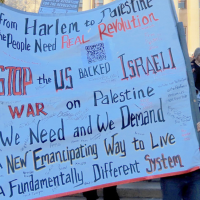 From Harlem to Palestine
the People Need REAL Revolution
STOP the US BACKED ISRAELI
WAR on Palestine
We Need and We Demand
A New Emancipating Way to Live
A Fundamentally Different System